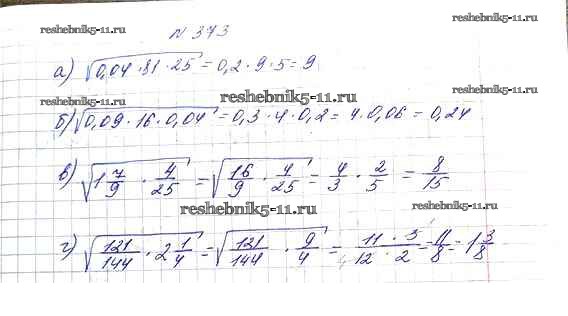 reshebnik5-11.ru
N 373
reshebnik5-11.ru
а) √(0,04 · 81 · 25) = 0,2 · 9 · 5 = 9
reshebnik5-11.ru
reshebnik5-11.ru
б) √(0,09 · 16 · 0,04) = 0,3 · 4 · 0,2 = 4 · 0,06 = 0,24
в) √(1 7/9 · 4/25) = √(16/9 · 4/25) = 4/3 · 2/5 = 8/15
reshebnik5-11.ru
reshebnik5-11.ru
г) √(121/144 · 2 1/4) = √(121/144 · 9/4) = 11 · 3/12 · 2 = 11/8 = 1 3/8